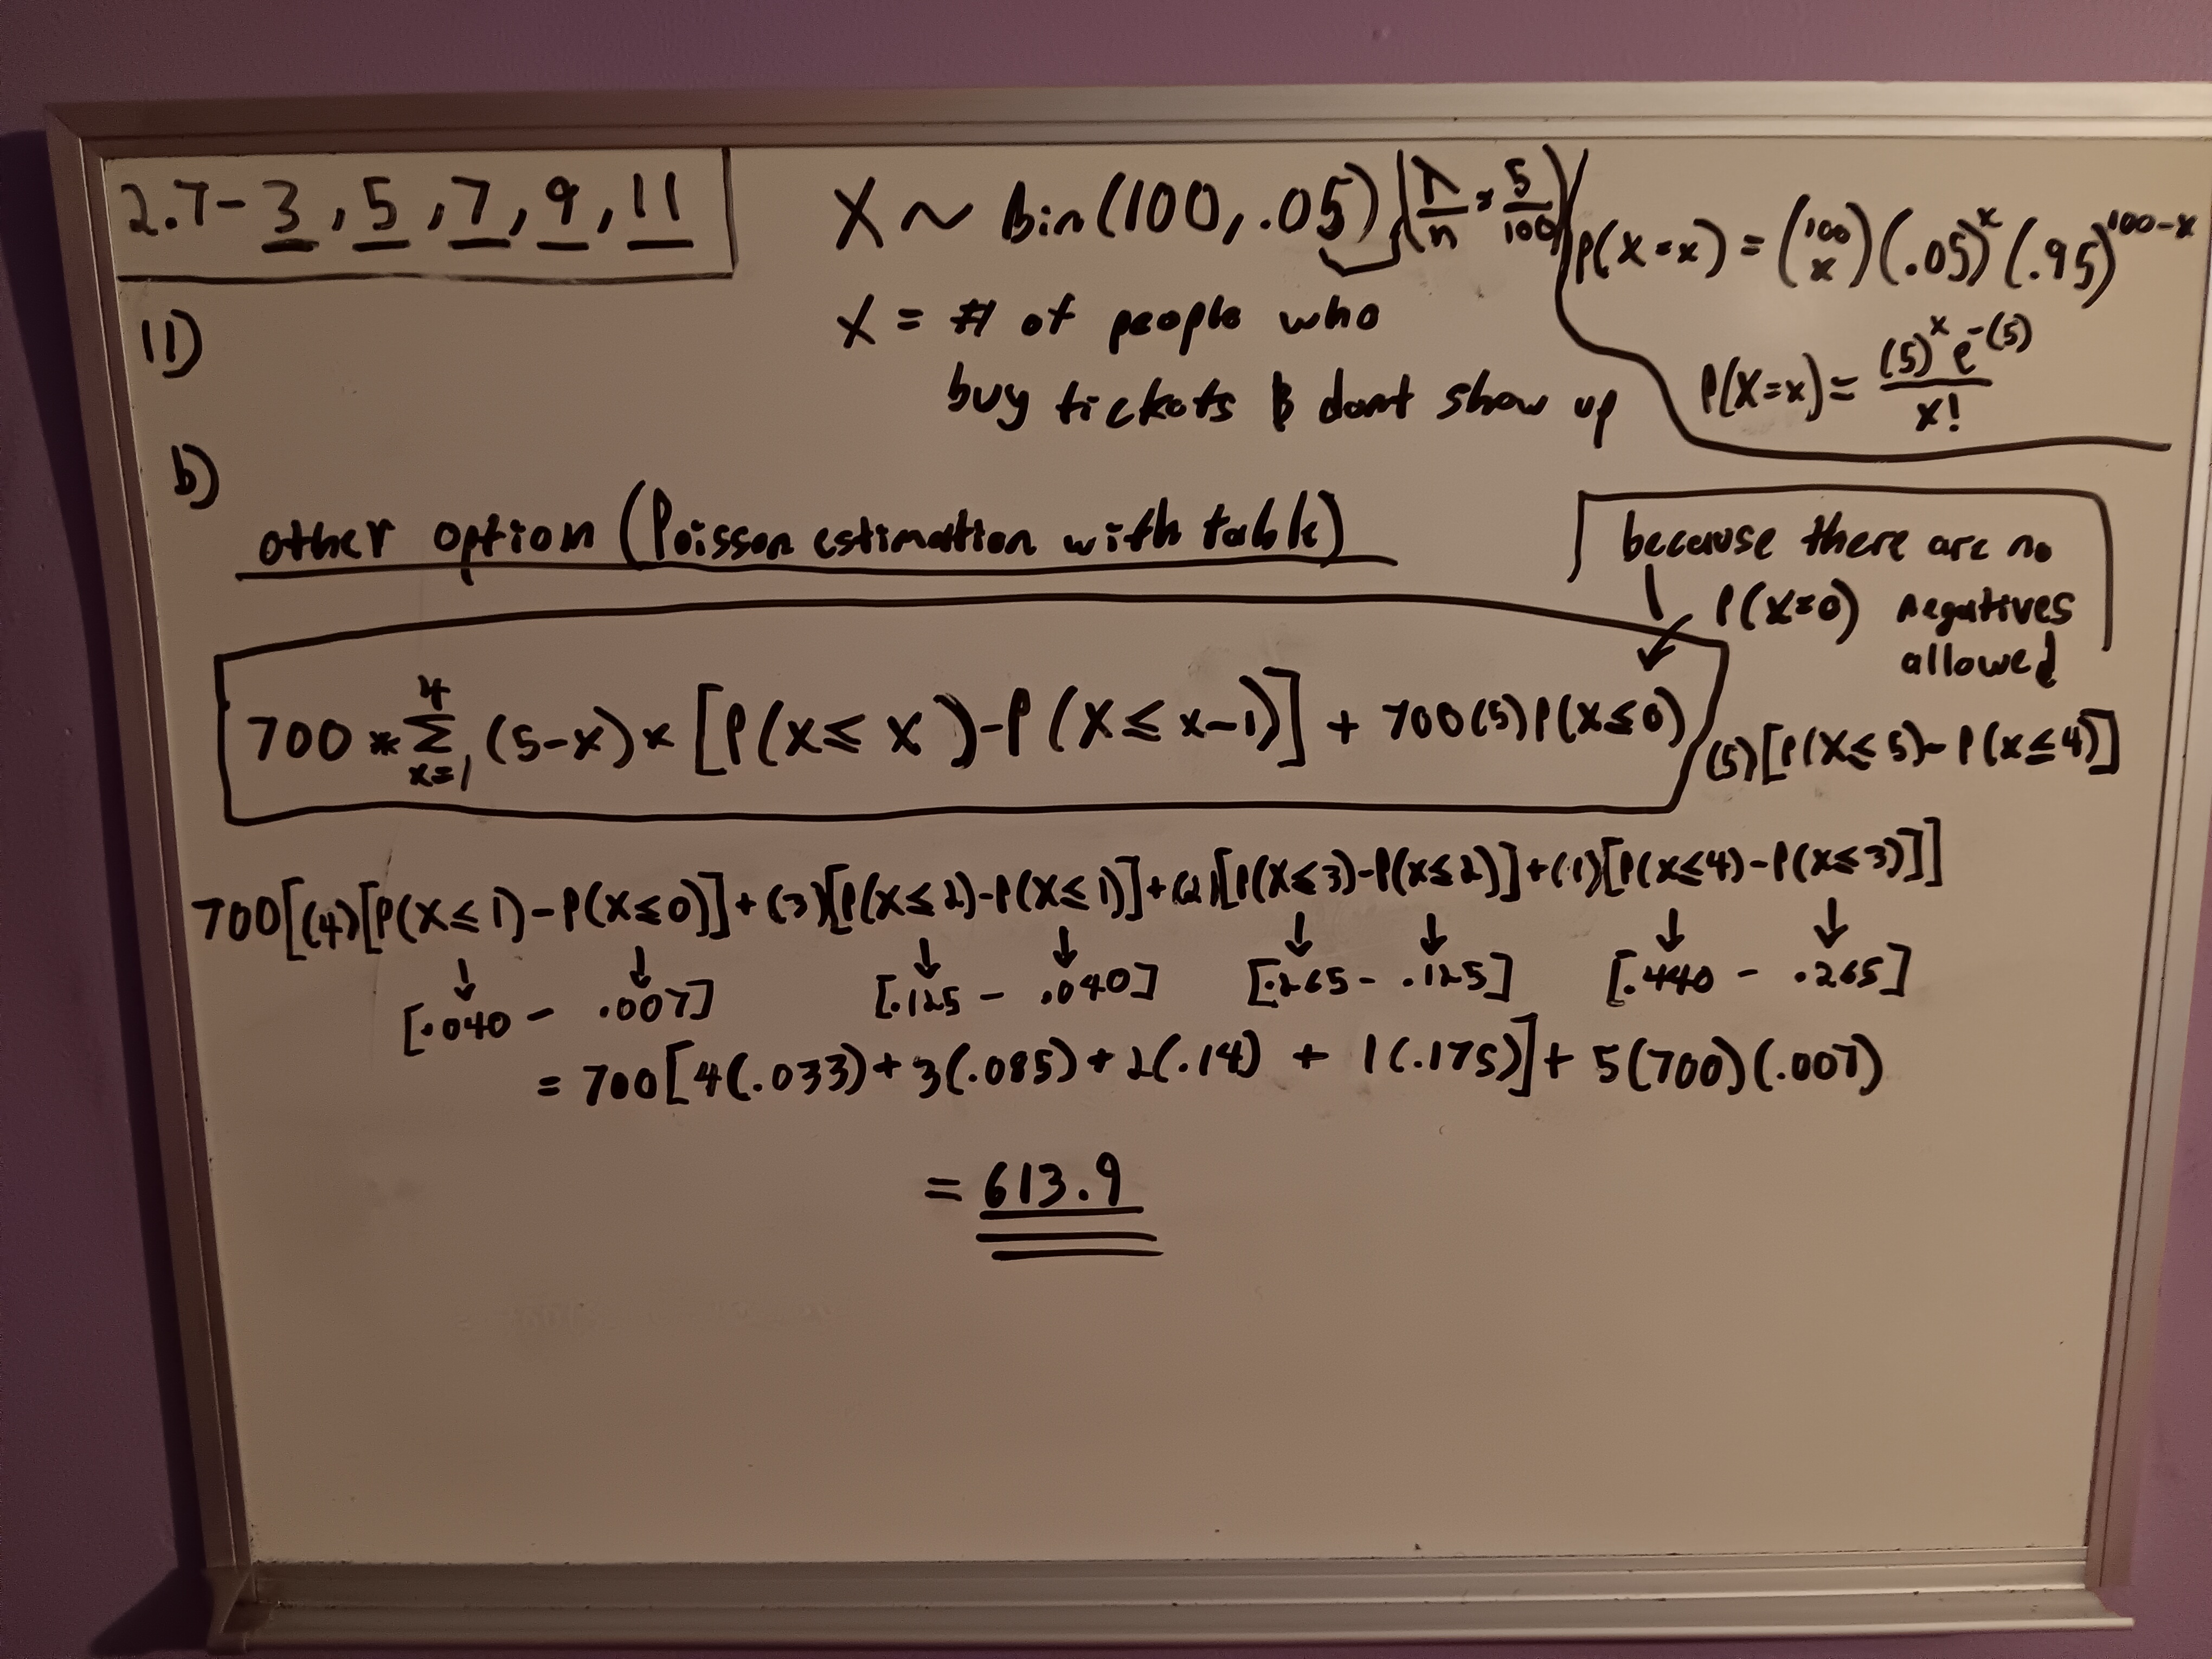 2.7-3,5,7,9,11
X ~ bin(100,.05) (λ/n = 5/100)
P(X=x) = (100 x)(.05)^x(.95)^100-x
11)
X = # of people who
buy tickets & dont show up
P(X=x) = (5)^x e^-(5) / x!
b)
other option (Poisson estimation with table)
because there are no
P(X=0) negatives
allowed
700 * Σ 4 x=1 (5-x) × [P(X≤x)-P(X≤x-1)] + 700(5)P(X≤0)
(5)[P(X≤5)-P(X≤4)]
700[(4)[P(X≤1)-P(X≤0)]+(3)[P(X≤2)-P(X≤1)]+(2)[P(X≤3)-P(X≤2)]+(1)[P(X≤4)-P(X≤3)]]
↓ ↓ ↓ ↓ ↓ ↓ ↓ ↓
[.040 - .007] [.125 - .040] [.265 - .125] [.440 - .265]
= 700[4(.033)+3(.085)+2(.14) + 1(.175)]+5(700)(.007)
= 613.9